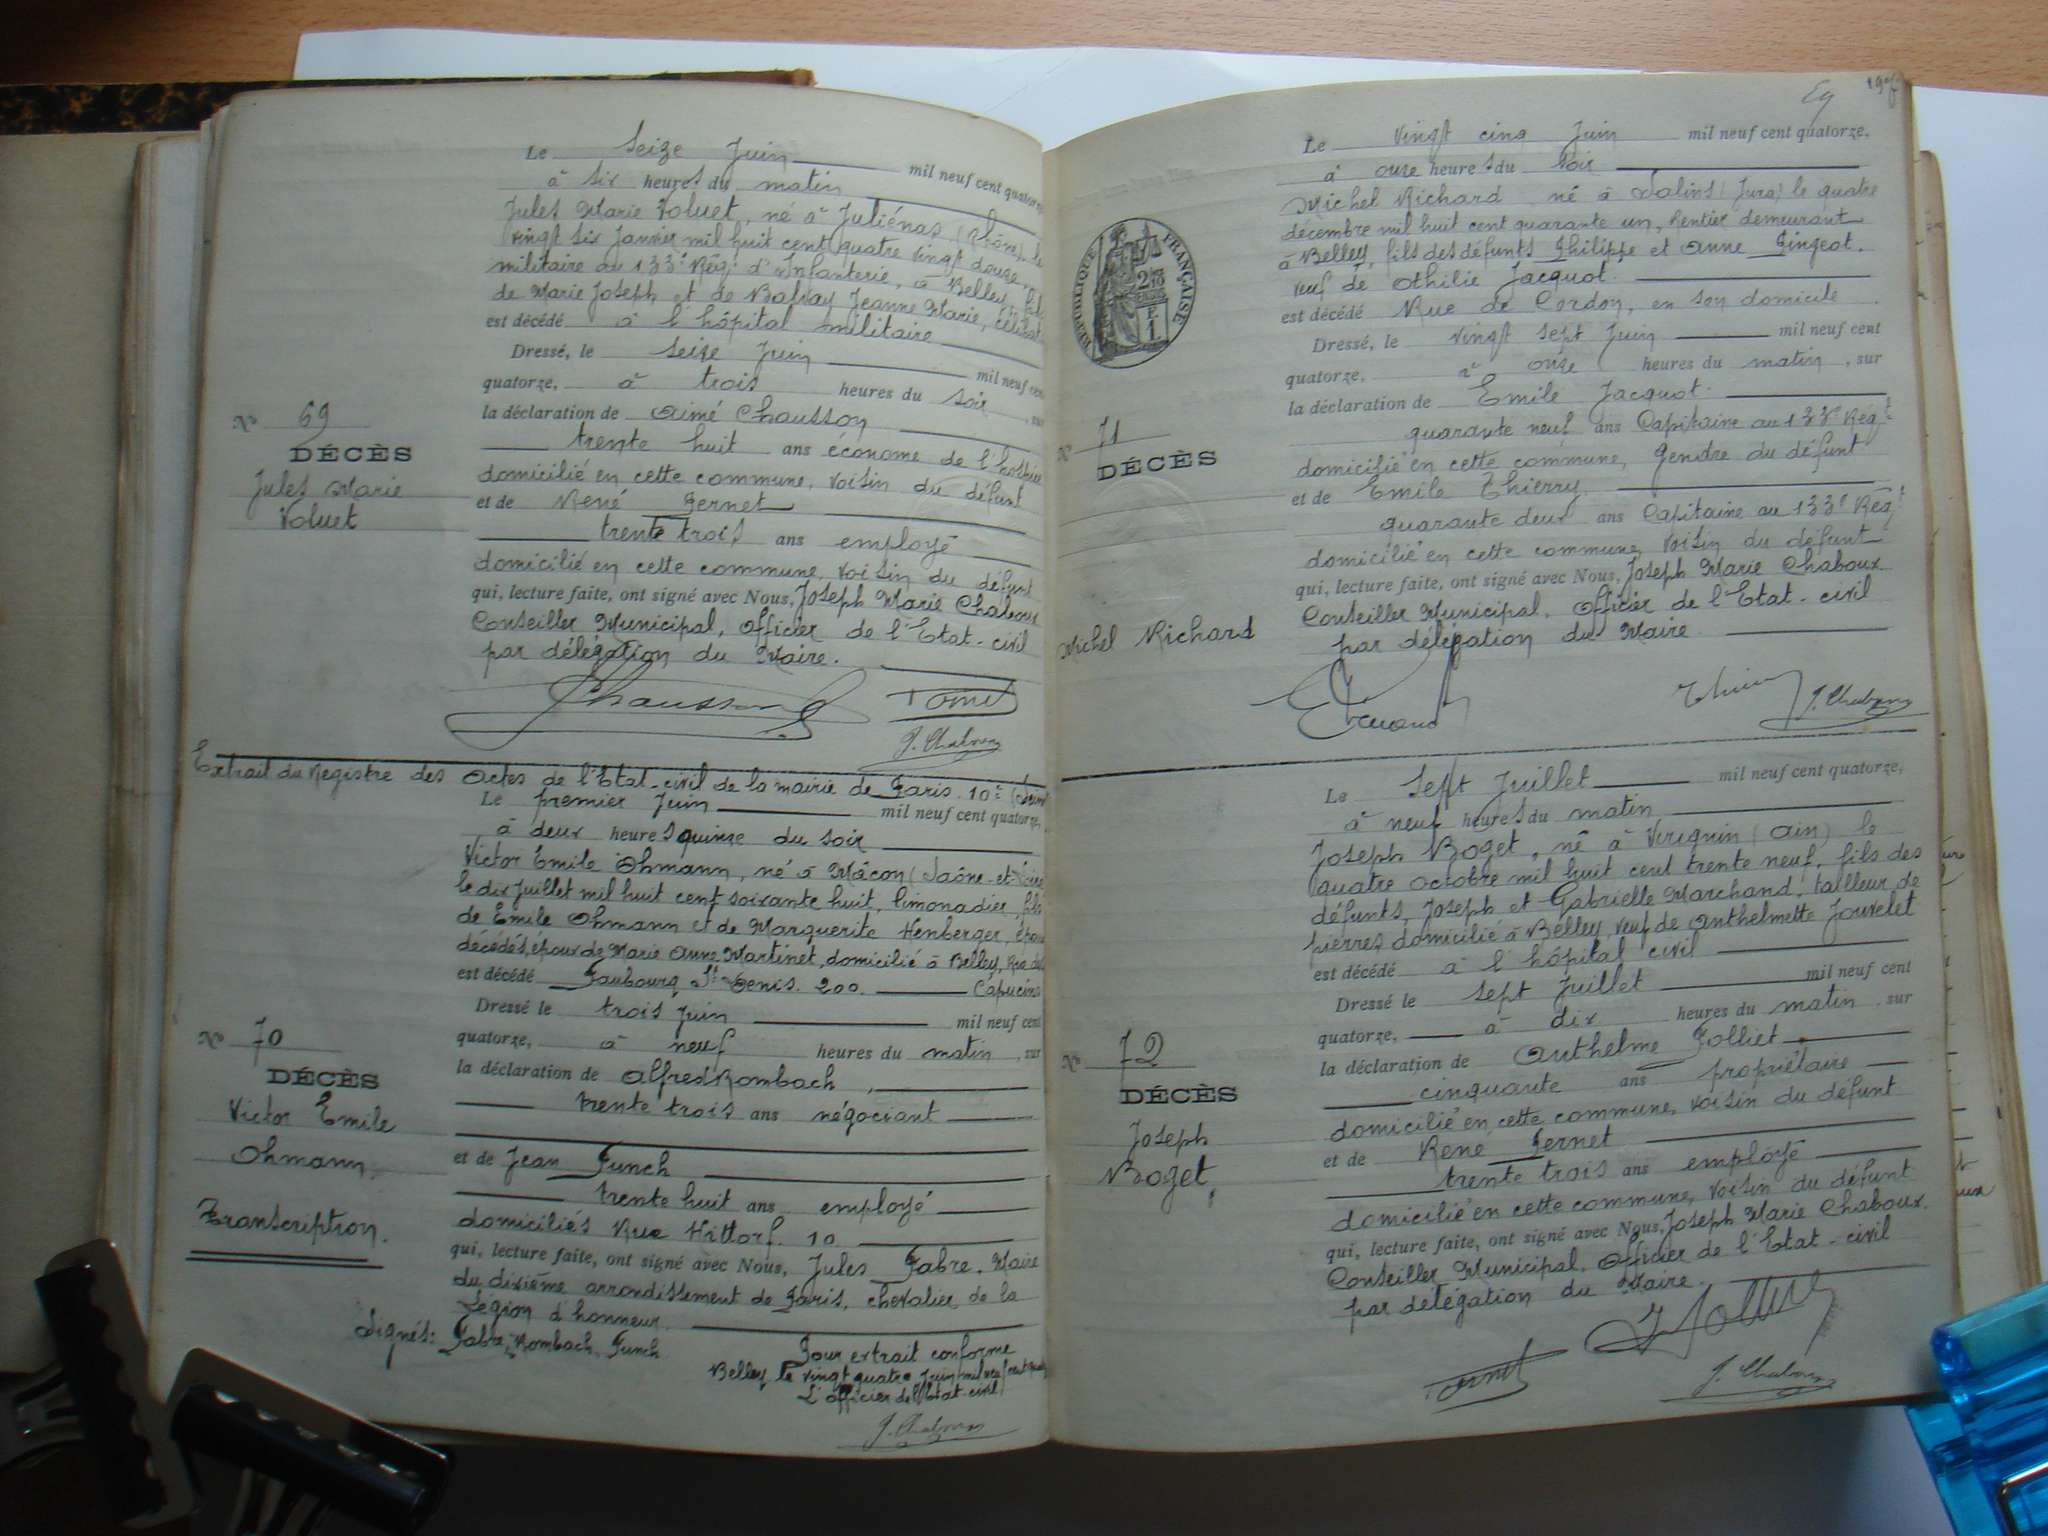 Le Seize Juin mil neuf cent quatorze
à six heures du matin
Jules Marie Voluet, né à Juliénas (Rhône) le
vingt six Janvier mil huit cent quatre vingt douze,
militaire au 133e Régt d'Infanterie, à Belley, fils
de Marie Joseph et de Balvay Jeanne Marie,
est décédé à l'hôpital militaire
Dressé, le seize Juin mil neuf cent
quatorze, à trois heures du soir, sur
la déclaration de Aimé Chausson
trente huit ans économe de l'hospice
domicilié en cette commune, voisin du défunt
et de René Pernet
trente trois ans employé
domicilié en cette commune, voisin du défunt
qui, lecture faite, ont signé avec Nous, Joseph Marie Chaboux
Conseiller Municipal, Officier de l'Etat-civil
par délégation du Maire.
No 69
DÉCÈS
Jules Marie
Voluet
Chausson
Pernet
J. Chaboux
Extrait du Registre des Actes de l'Etat-civil de la mairie de Paris. 10e
Le premier Juin mil neuf cent quatorze,
à deux heures quinze du soir
Victor Emile Ohmann, né à Mâcon (Saône-et-Loire
le dix Juillet mil huit cent soixante huit, limonadier, fils
de Emile Ohmann et de Marguerite Henberger, époux
décédés, époux de Marie Anne Martinet, domicilié à Belley, Rue des
est décédé Faubourg St Denis. 200. Capucins
Dressé le trois Juin mil neuf cent
quatorze, à neuf heures du matin, sur
la déclaration de Alfred Rombach,
trente trois ans négociant
et de Jean Funch
trente huit ans employé
domiciliés Rue Hittorf. 10
qui, lecture faite, ont signé avec Nous, Jules Fabre, Maire
du dixième arrondissement de Paris, chevalier de la
Légion d'honneur.
Signés: Fabre, Rombach, Funch
Pour extrait conforme
Belley, le vingt quatre Juin mil neuf cent
L'officier de l'Etat-civil
J. Chaboux
No 70
DÉCÈS
Victor Emile
Ohmann.
Transcription.
Le vingt cinq Juin mil neuf cent quatorze,
à onze heures du soir
Michel Richard né à Salins (Jura) le quatre
décembre mil huit cent quarante un, Rentier demeurant
à Belley, fils des défunts Philippe et Anne Pingeot.
veuf de Othilie Jacquot.
est décédé Rue de Cordon, en son domicile
Dressé, le vingt sept Juin mil neuf cent
quatorze, à onze heures du matin, sur
la déclaration de Emile Jacquot.
quarante neuf ans Capitaine au 133e Régt
domicilié en cette commune, gendre du défunt
et de Emile Thierry
quarante deux ans Capitaine au 133e Régt
domicilié en cette commune voisin du défunt
qui, lecture faite, ont signé avec Nous, Joseph Marie Chaboux
Conseiller Municipal, Officier de l'Etat-civil
par délégation du Maire
RÉPUBLIQUE FRANÇAISE
No 71
DÉCÈS
Michel Richard
J. Chaboux
Le Sept Juillet mil neuf cent quatorze,
à neuf heures du matin
Joseph Boget, né à Virignin (Ain) le
quatre octobre mil huit cent trente neuf, fils des
défunts, Joseph et Gabrielle Marchand, tailleur de
pierres domicilié à Belley, veuf de Anthelmette Jouvelet
est décédé à l'hôpital civil
Dressé le sept Juillet mil neuf cent
quatorze, à dix heures du matin, sur
la déclaration de Anthelme Jolliet
cinquante ans propriétaire
domicilié en cette commune, voisin du défunt
et de René Pernet
trente trois ans employé
domicilié en cette commune, voisin du défunt
qui, lecture faite, ont signé avec Nous, Joseph Marie Chaboux
Conseiller Municipal, Officier de l'Etat-civil
par délégation du Maire
No 72
DÉCÈS
Joseph
Boget
Pernet
J. Chaboux